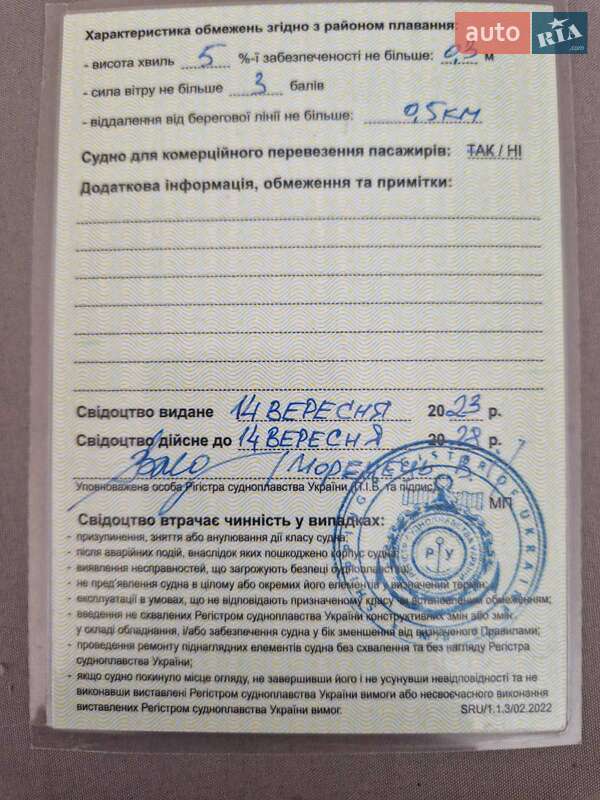 Характеристика обмежень згідно з районом плавання:
auto RIA .com
- висота хвиль 5 %-ї забезпеченості не більше: 0,3 м
- сила вітру не більше 3 балів
- віддалення від берегової лінії не більше: 0,5 км
Судно для комерційного перевезення пасажирів: ТАК / НІ
Додаткова інформація, обмеження та примітки:
Свідоцтво видане 14 ВЕРЕСНЯ 2023 р.
Свідоцтво дійсне до 14 ВЕРЕСНЯ 2028 р.
Уповноважена особа Регістра судноплавства України (П.І.В. та підпис)
МП
Свідоцтво втрачає чинність у випадках:
- призупинення, зняття або анулювання дії класу судна;
- після аварійних подій, внаслідок яких пошкоджено корпус судна;
- виявлення несправностей, що загрожують безпеці судноплавства;
- не пред'явлення судна в цілому або окремих його елементів у визначений термін;
- експлуатації в умовах, що не відповідають призначеному класу чи встановленим обмеженням;
- введення не схвалених Регістром судноплавства України конструктивних змін або змін
у складі обладнання, і/або забезпечення судна у бік зменшення від визначеного Правилами;
- проведення ремонту піднаглядних елементів судна без схвалення та без нагляду Регістра
судноплавства України;
- якщо судно покинуло місце огляду, не завершивши його і не усунувши невідповідності та не
виконавши виставлені Регістром судноплавства України вимоги або несвоєчасного виконання
виставлених Регістром судноплавства України вимог.
SRU/1.1.3/02.2022